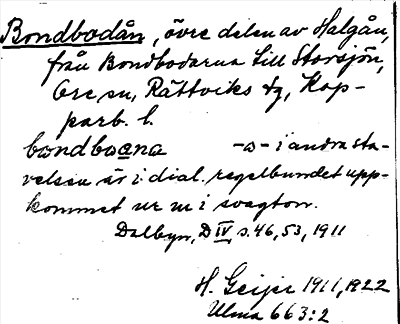 Bondbodån, övre delen av Halgån,
från Bondbodarna till Storsjön,
Ore sn, Rättviks tg, Kop-
parb. l.
bondboana -o- i andra sta-
velsen är i dial. regelbundet upp-
kommet ur u i svagton.
Dalbyn, D IV s. 46, 53, 1911
H. Geijer 1911, 1922
Ulma 663:2